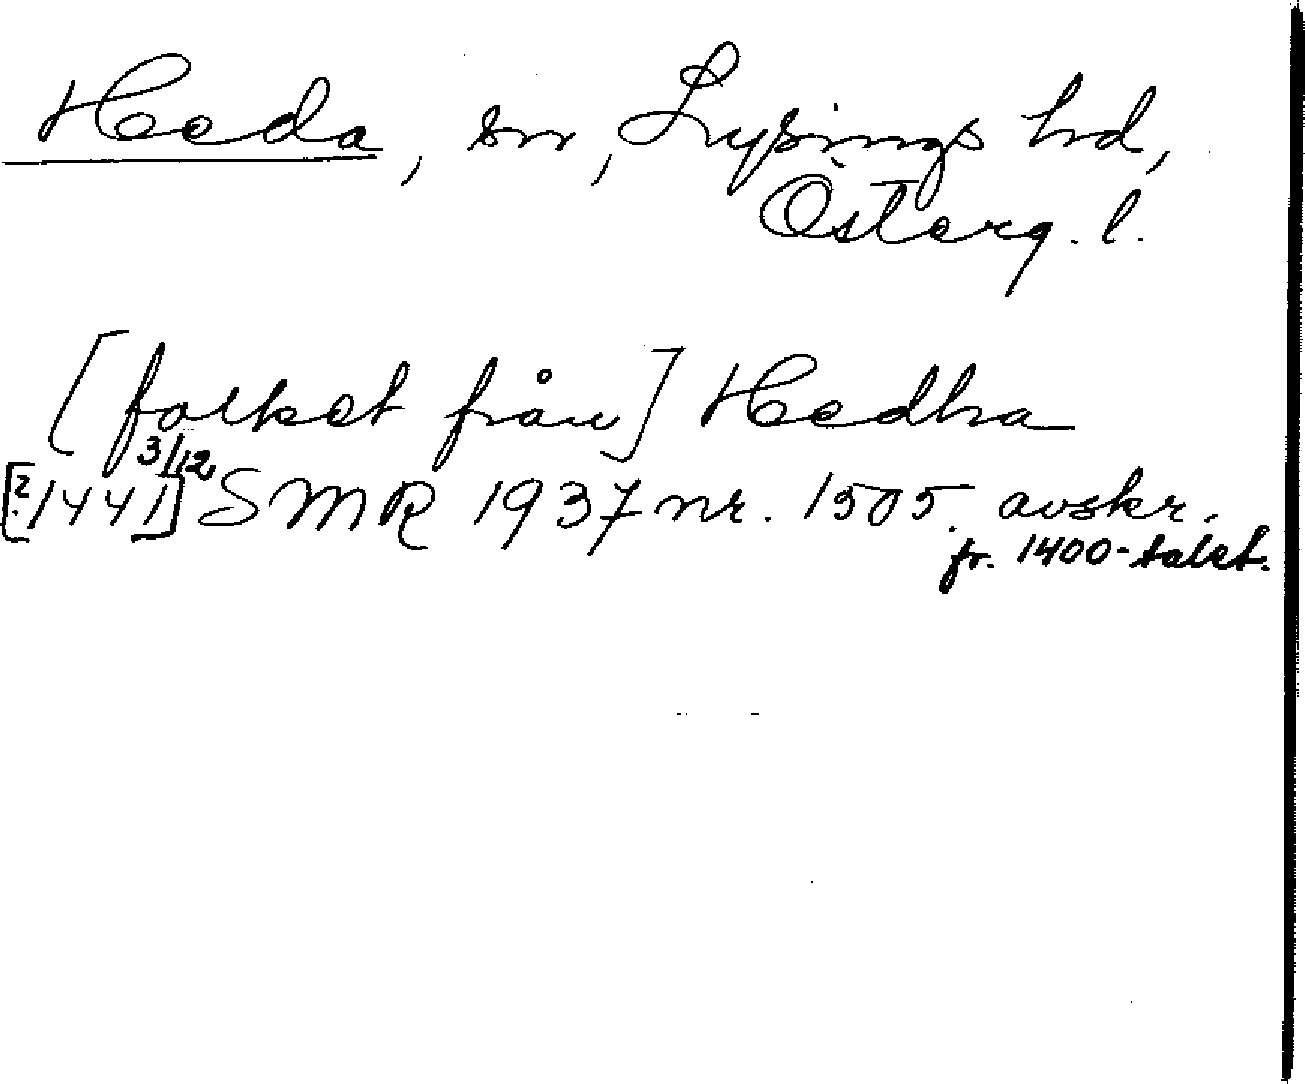 Heda, sn, Lysings hd,
Österg. l.
[folket från] Hedha
3/12
[?1441] SMR 1937 nr. 1505. avskr.
fr. 1400-talet.